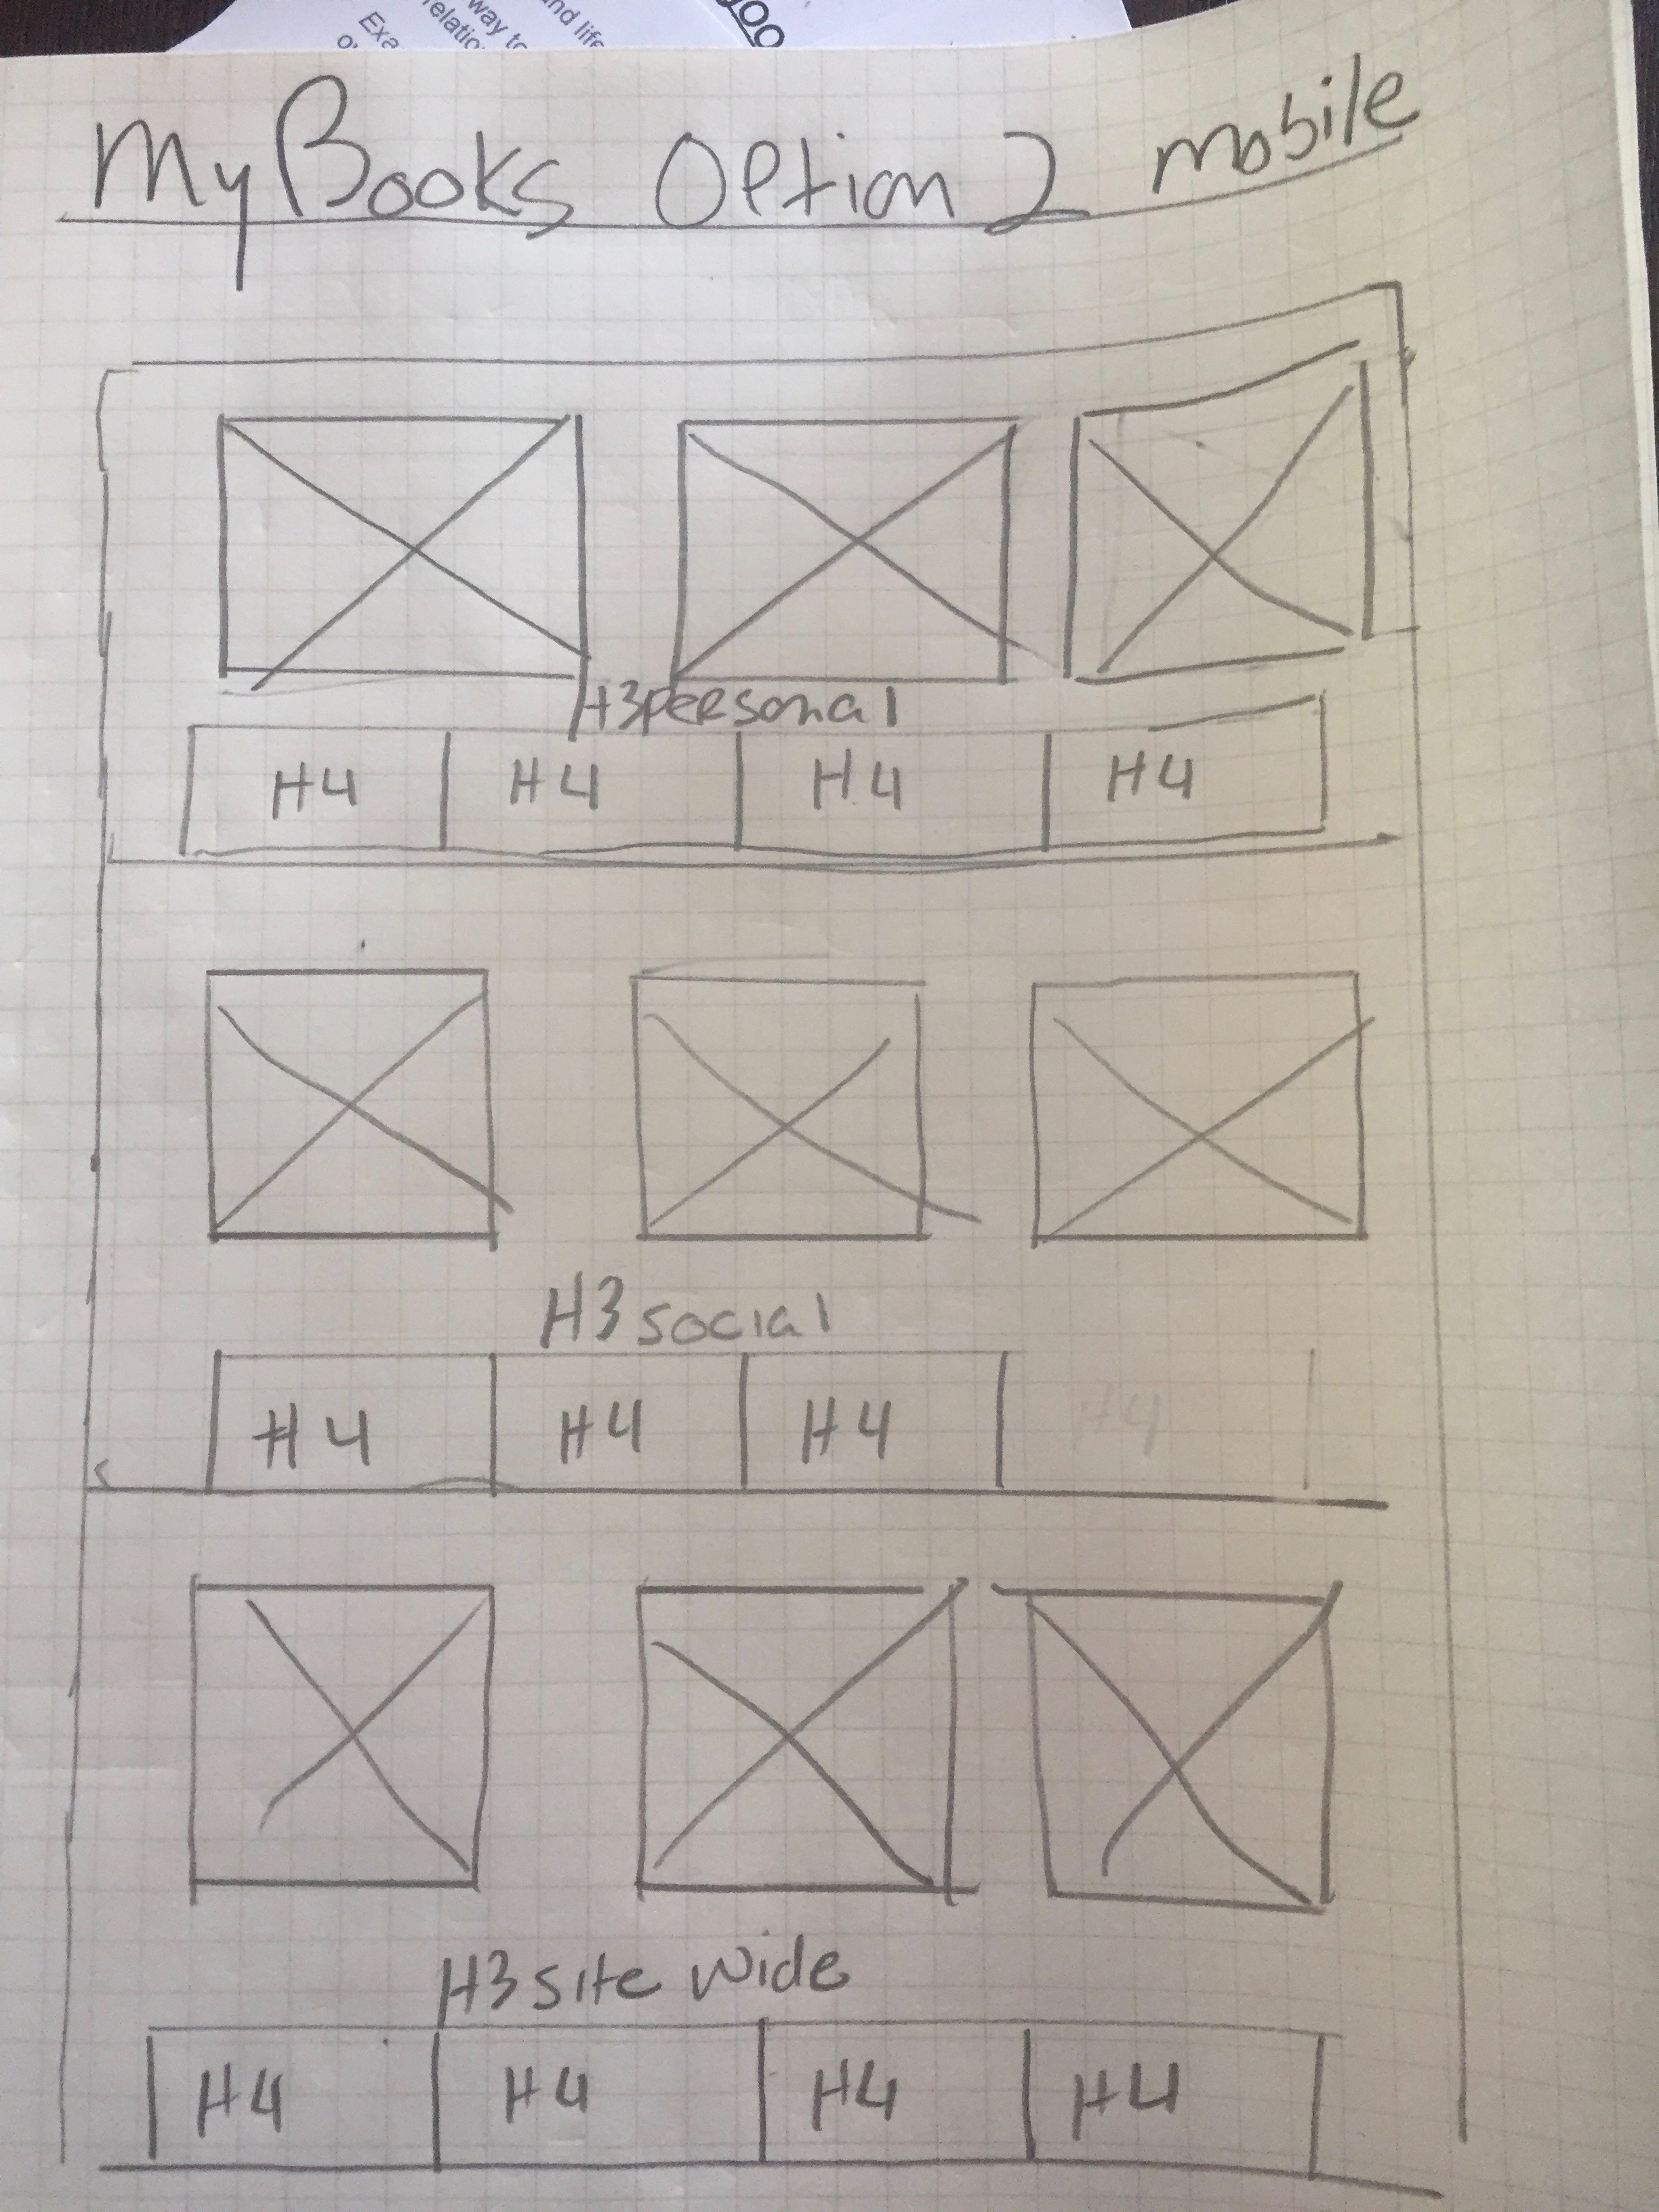 Exa
relatio
way to
nd life
My Books Option 2 mobile
H3 personal
H4 H4 H4 H4
H3 social
H4 H4 H4 H4
H3 site wide
H4 H4 H4 H4